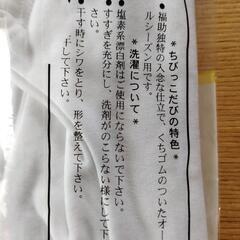 *ちびっこたびの特色*
・福助独特の入念な仕立で、くちゴムのついたオー
ルシーズン用です。
*洗濯について*
・塩素系漂白剤はご使用にならないで下さい。
・すすぎを充分にし、洗剤がのこらない様にして下
さい。
・干す時にシワをとり、形を整えて
干して下さい。